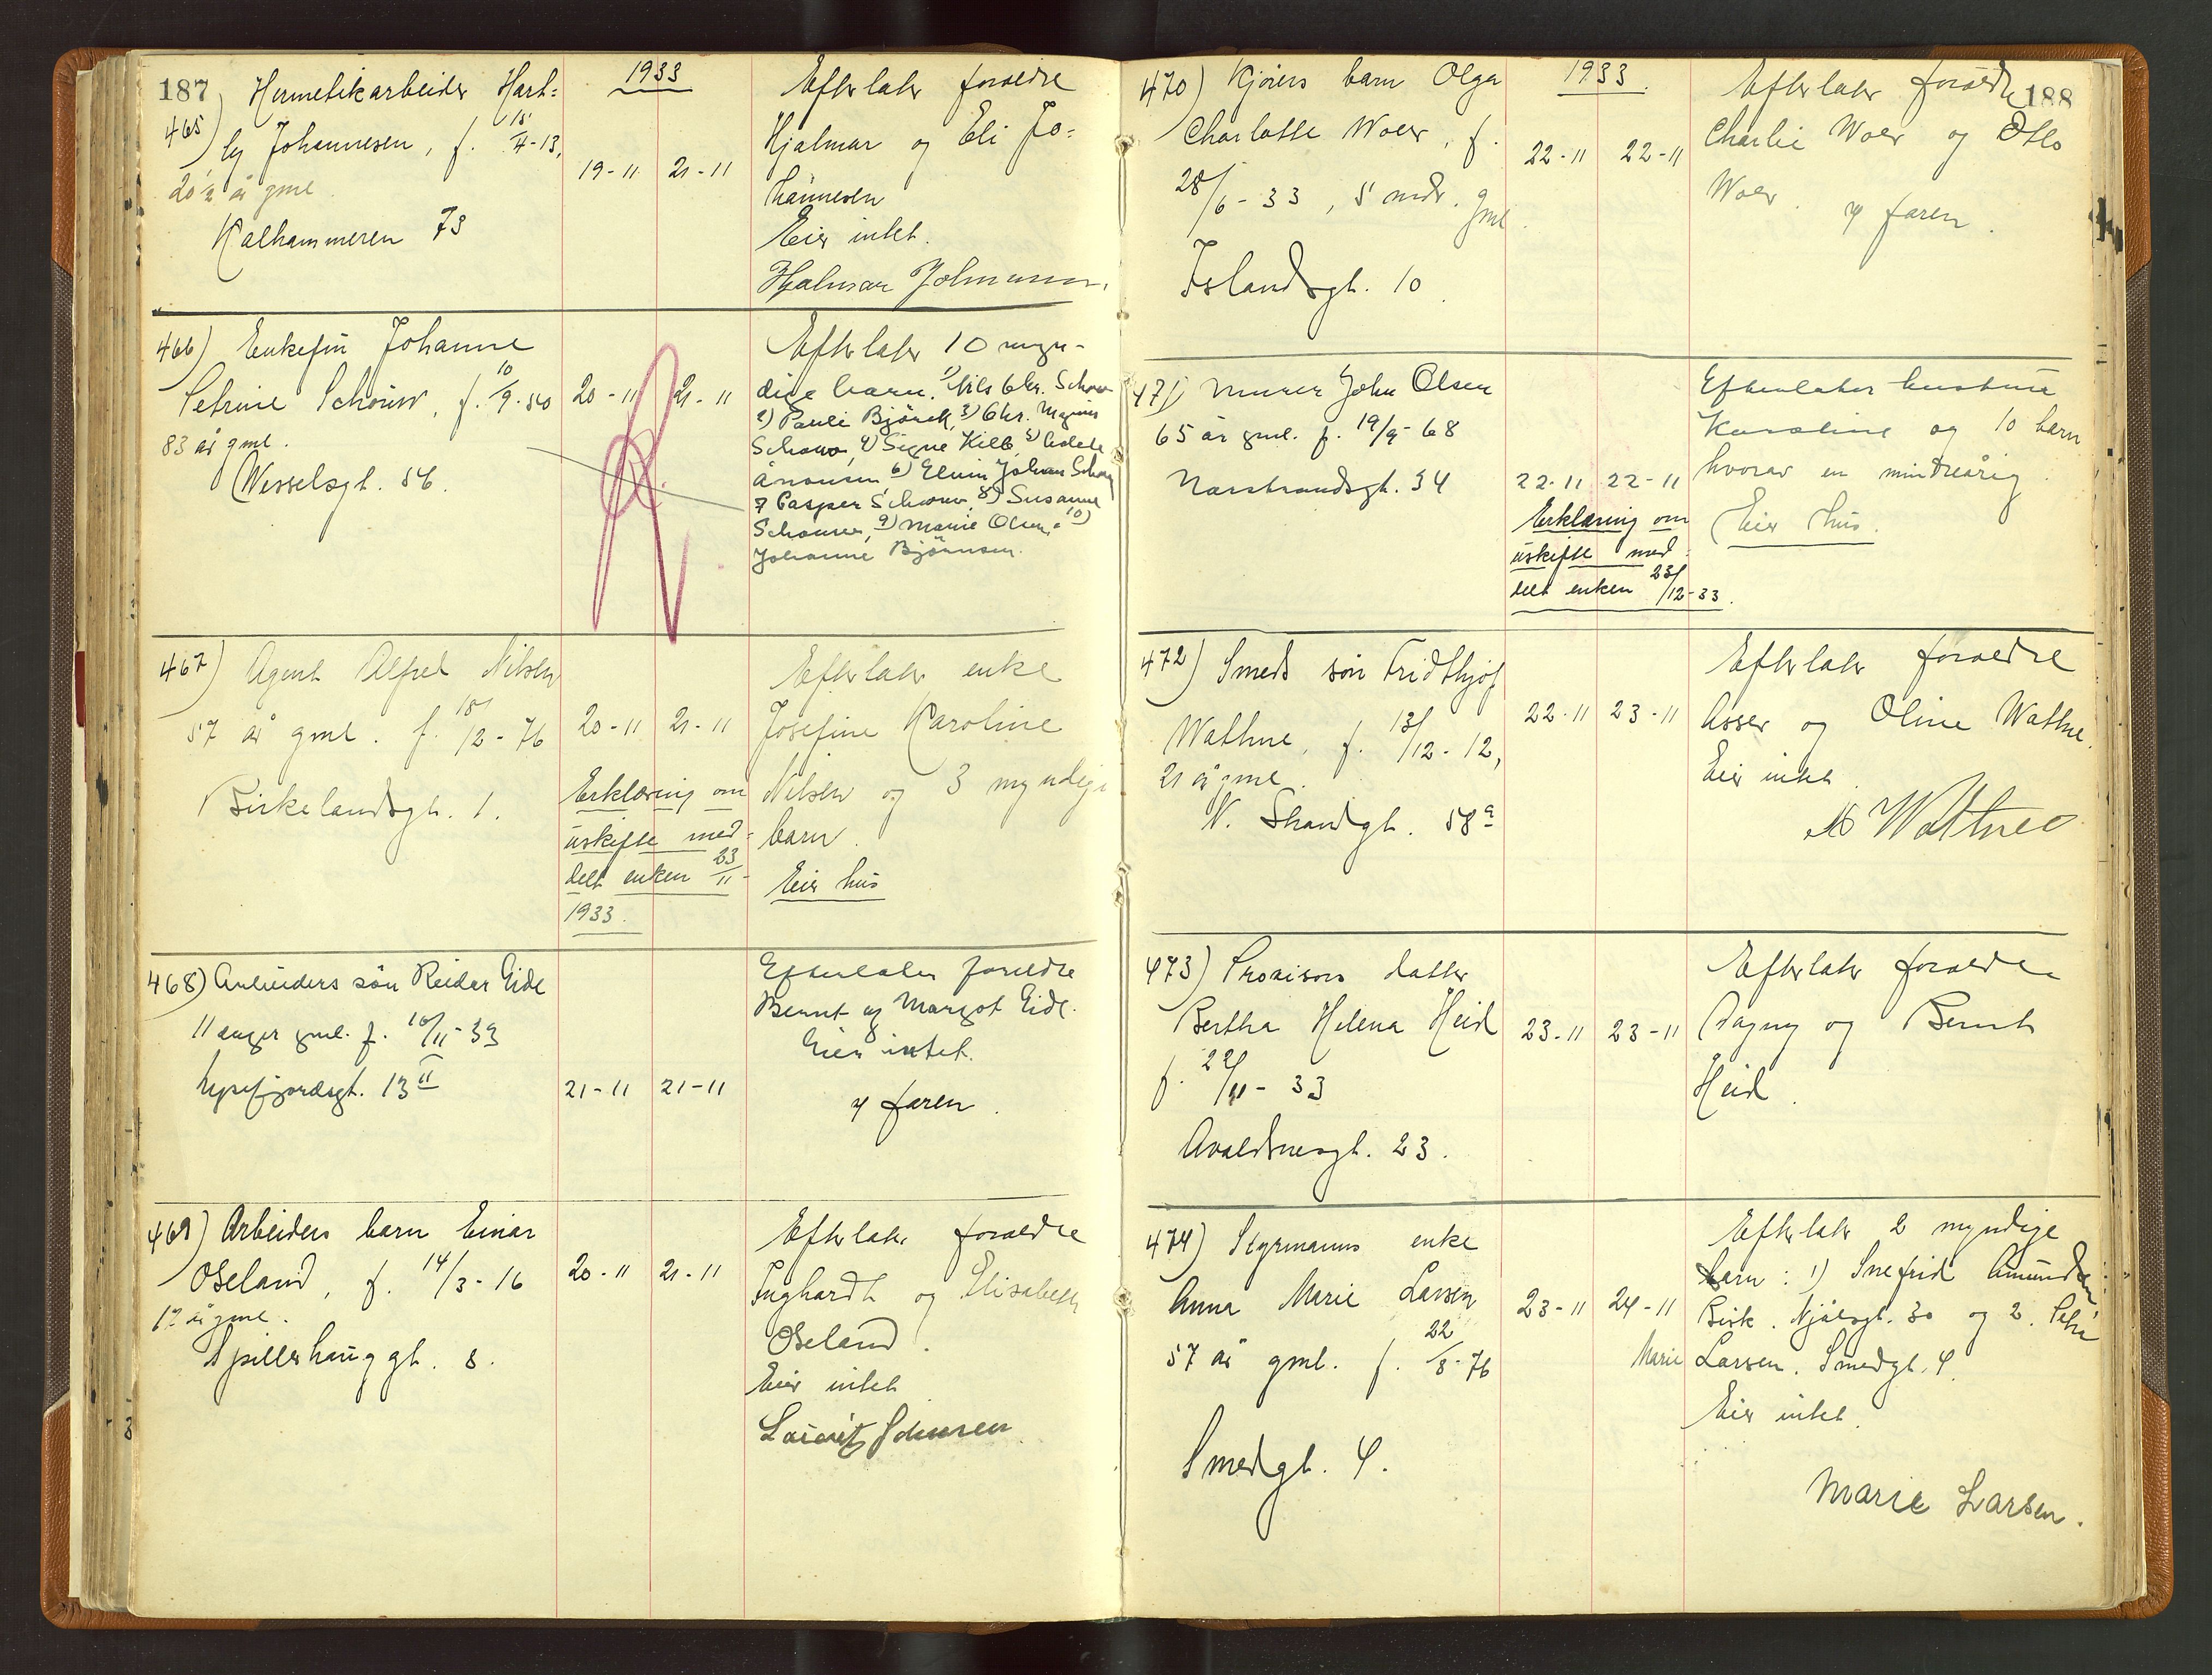 187
1933
465) Hermetikarbeider Hart=
ly Johannesen, f. 15/4-13,
20 1/2 år gml.
Kalhammeren 73
19-11 21-11
Efterlater foreldre
Hjalmar og Eli Jo=
hannesen
Eier intet.
Hjalmar Johannesen.
466) Enkefru Johanne
Petrine Schouw, f. 10/9-50
83 år gml.
Wesselsgt. 56.
20-11 21-11
Efterlater 10 myn-
dige barn. 1) Nils Chr. Schouw
2) Pauli Björck, 3) Chr. Magnus
Schouw, 4) Signe Kilb, 5)
6) Johan Schouw
7 Casper Schouw, 8) Susanne
Schouw, 9) Marie Olsen, 10)
Johanne Björnsen.
467) Agent Alfred Nilsen
57 år gml. f. 15/12-76
Birkelandsgt. 1.
20-11 21-11
Erklæring om
uskifte med-
delt enken 23/11-
1933.
Efterlater enke
Josefine Karoline
Nilsen og 3 myndige
barn.
Eier hus
468) Arbeiders sön Reidar Eide
11 dager gml. f. 10/11-33
Lysefjordsgt. 13 II
21-11 21-11
Efterlater foreldre
Bernt og Margot Eide.
Eier intet.
faren.
469) Arbeiders barn Einar
Oseland, f. 14/3-16
17 år gml.
Spillerhauggt. 8.
20-11 21-11
Efterlater foreldre
Inghardt og Elisabeth
Oseland.
Eier intet
188
1933.
470) Kjörers barn Olga
Charlotte Woer, f.
28/6-33, 5 mdr. gml.
Islandsgt. 10.
22-11 22-11
Efterlater foreldre
Charlie Woer og
Woer. faren.
471) Murer John Olsen
65 år gml. f. 19/9-68
Narstrandsgt. 34
22-11 22-11
Erklæring om
uskifte med-
delt enken 23/12-33.
Efterlater hustru
Karoline og 10 barn
hvorav en mindreårig.
Eier hus.
472) Smeds sön Fridthjof
Wathne, f. 13/12-12,
21 år gml.
N. Strandgt. 58a
22-11 23-11
Efterlater foreldre
Asser og Oline Wathne.
Eier intet.
A Wathne
473) Provisors datter
Bertha Helena Heid
f. 22/11-33
Avaldsnesgt. 23.
23-11 23-11
Efterlater foreldre
Dagny og Bernt
Heid.
474) Styrmanns enke
Anna Marie Larsen
57 år gml. f. 22/8-76
Smedgt. 4.
23-11 24-11
Efterlater 2 myndige
barn: 1) Snefrid Amundsen
Birk. Njålsgt. 30 og 2. Petra
Marie Larsen. Smedgt. 4.
Eier intet.
Marie Larsen.